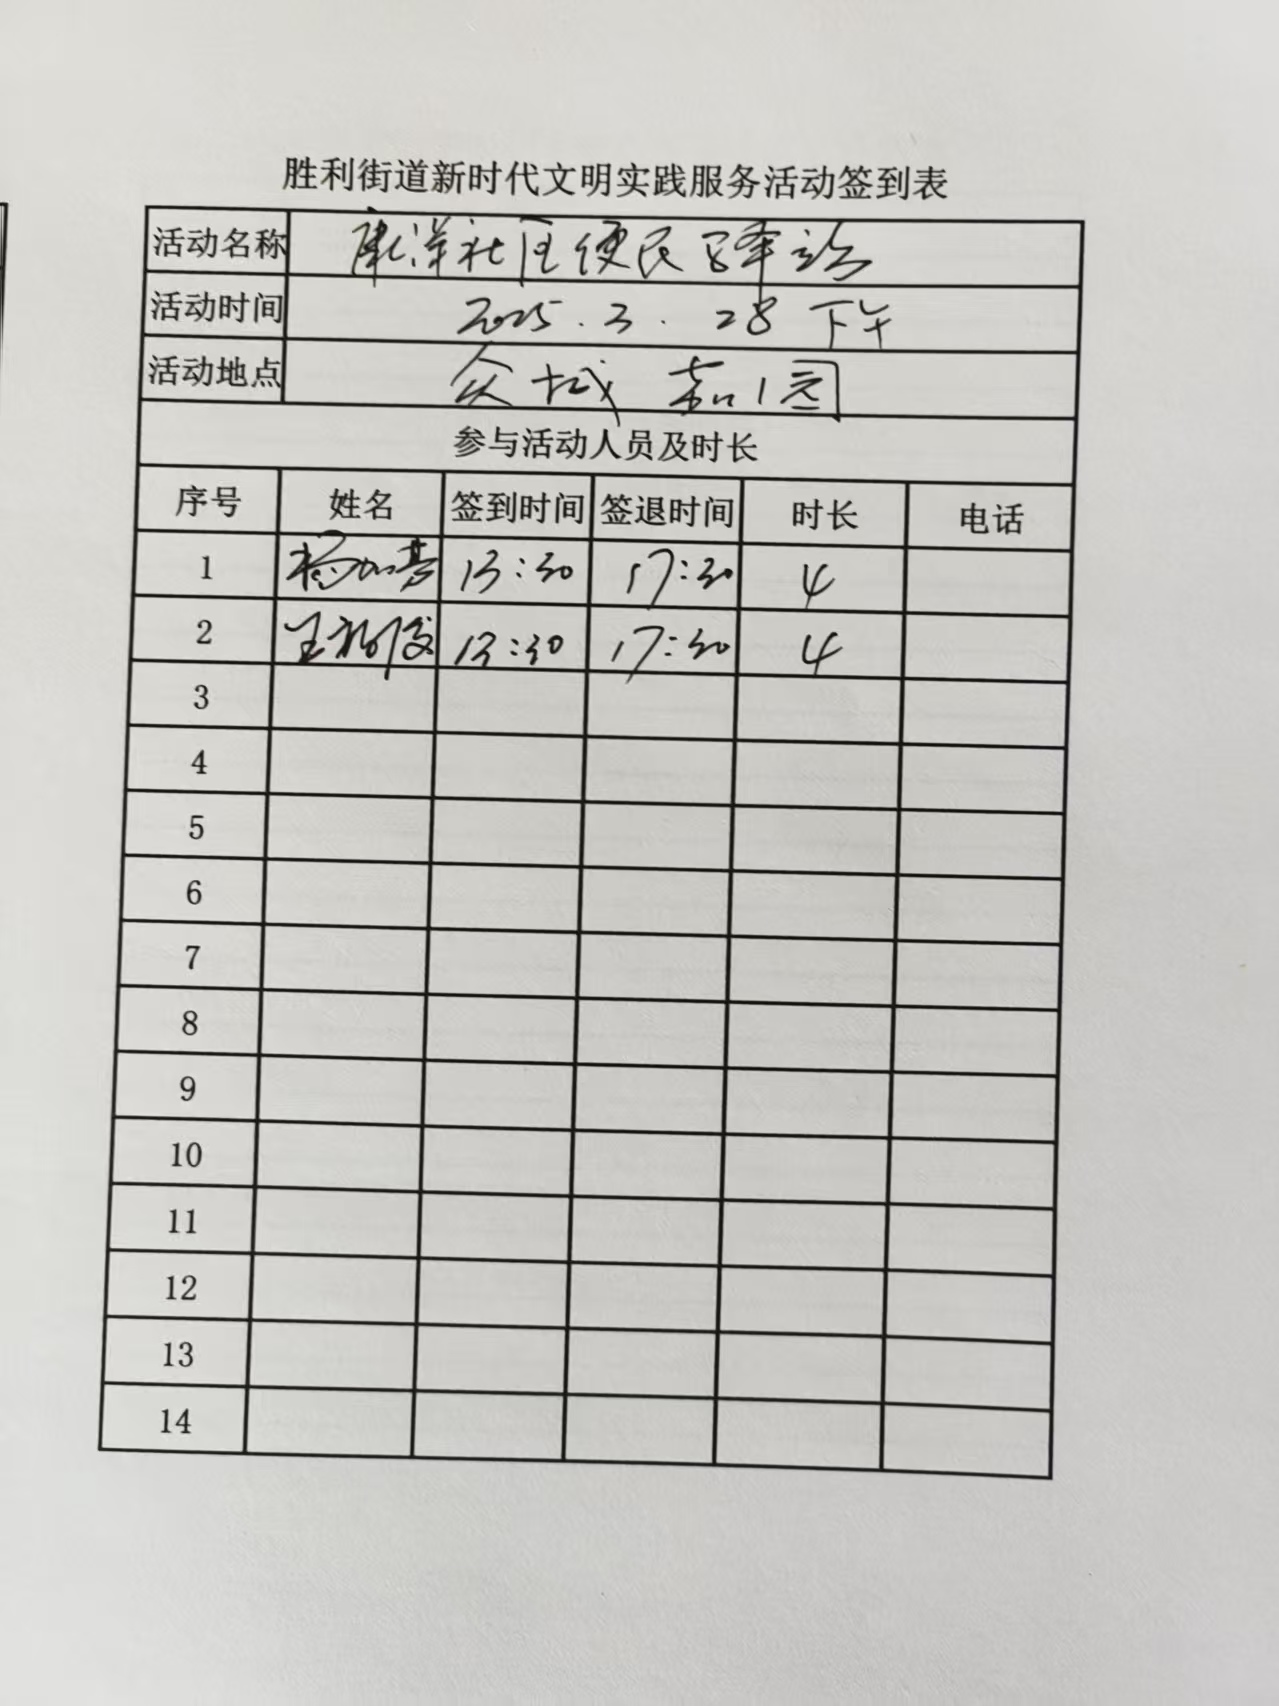 胜利街道新时代文明实践服务活动签到表
活动名称 康洋社区便民驿站
活动时间 2025.3.28 下午
活动地点 众城 园
参与活动人员及时长
序号 姓名 签到时间 签退时间 时长 电话
1 杨 13:30 17:30 4
2 王 俊 13:30 17:30 4
3
4
5
6
7
8
9
10
11
12
13
14